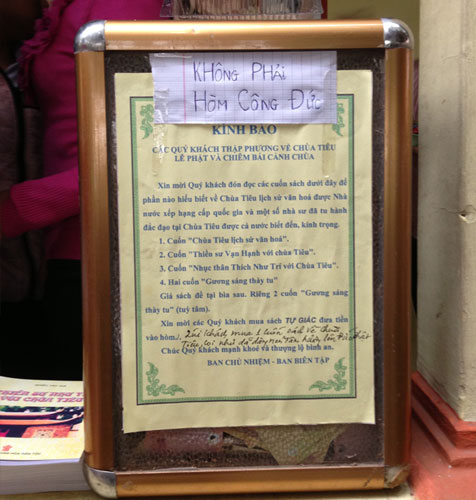 KHÔNG PHẢI
HÒM CÔNG ĐỨC
KÍNH BÁO
CÁC QUÝ KHÁCH THẬP PHƯƠNG VỀ CHÙA TIÊU
LỄ PHẬT VÀ CHIÊM BÁI CẢNH CHÙA
Xin mời Quý khách đón đọc các cuốn sách dưới đây để
phần nào hiểu biết về Chùa Tiêu lịch sử văn hoá được Nhà
nước xếp hạng cấp quốc gia và một số nhà sư đã tu hành
đắc đạo tại Chùa Tiêu được cả nước biết đến, kính trọng.
1. Cuốn "Chùa Tiêu lịch sử văn hoá".
2. Cuốn "Thiền sư Vạn Hạnh với chùa Tiêu".
3. Cuốn "Nhục thân Thích Như Trí với Chùa Tiêu".
4. Hai cuốn "Gương sáng thầy tu"
Giá sách đề tại bìa sau. Riêng 2 cuốn "Gương sáng
thầy tu" (tuỳ tâm).
Xin mời các Quý khách mua sách TỰ GIÁC đưa tiền
vào hòm./.
khách mua 1 cuốn sách về chùa
Tiêu
Chúc Quý khách mạnh khoẻ và thượng lộ bình an.
BAN CHỦ NHIỆM - BAN BIÊN TẬP
VỚI CHÙA TIÊU